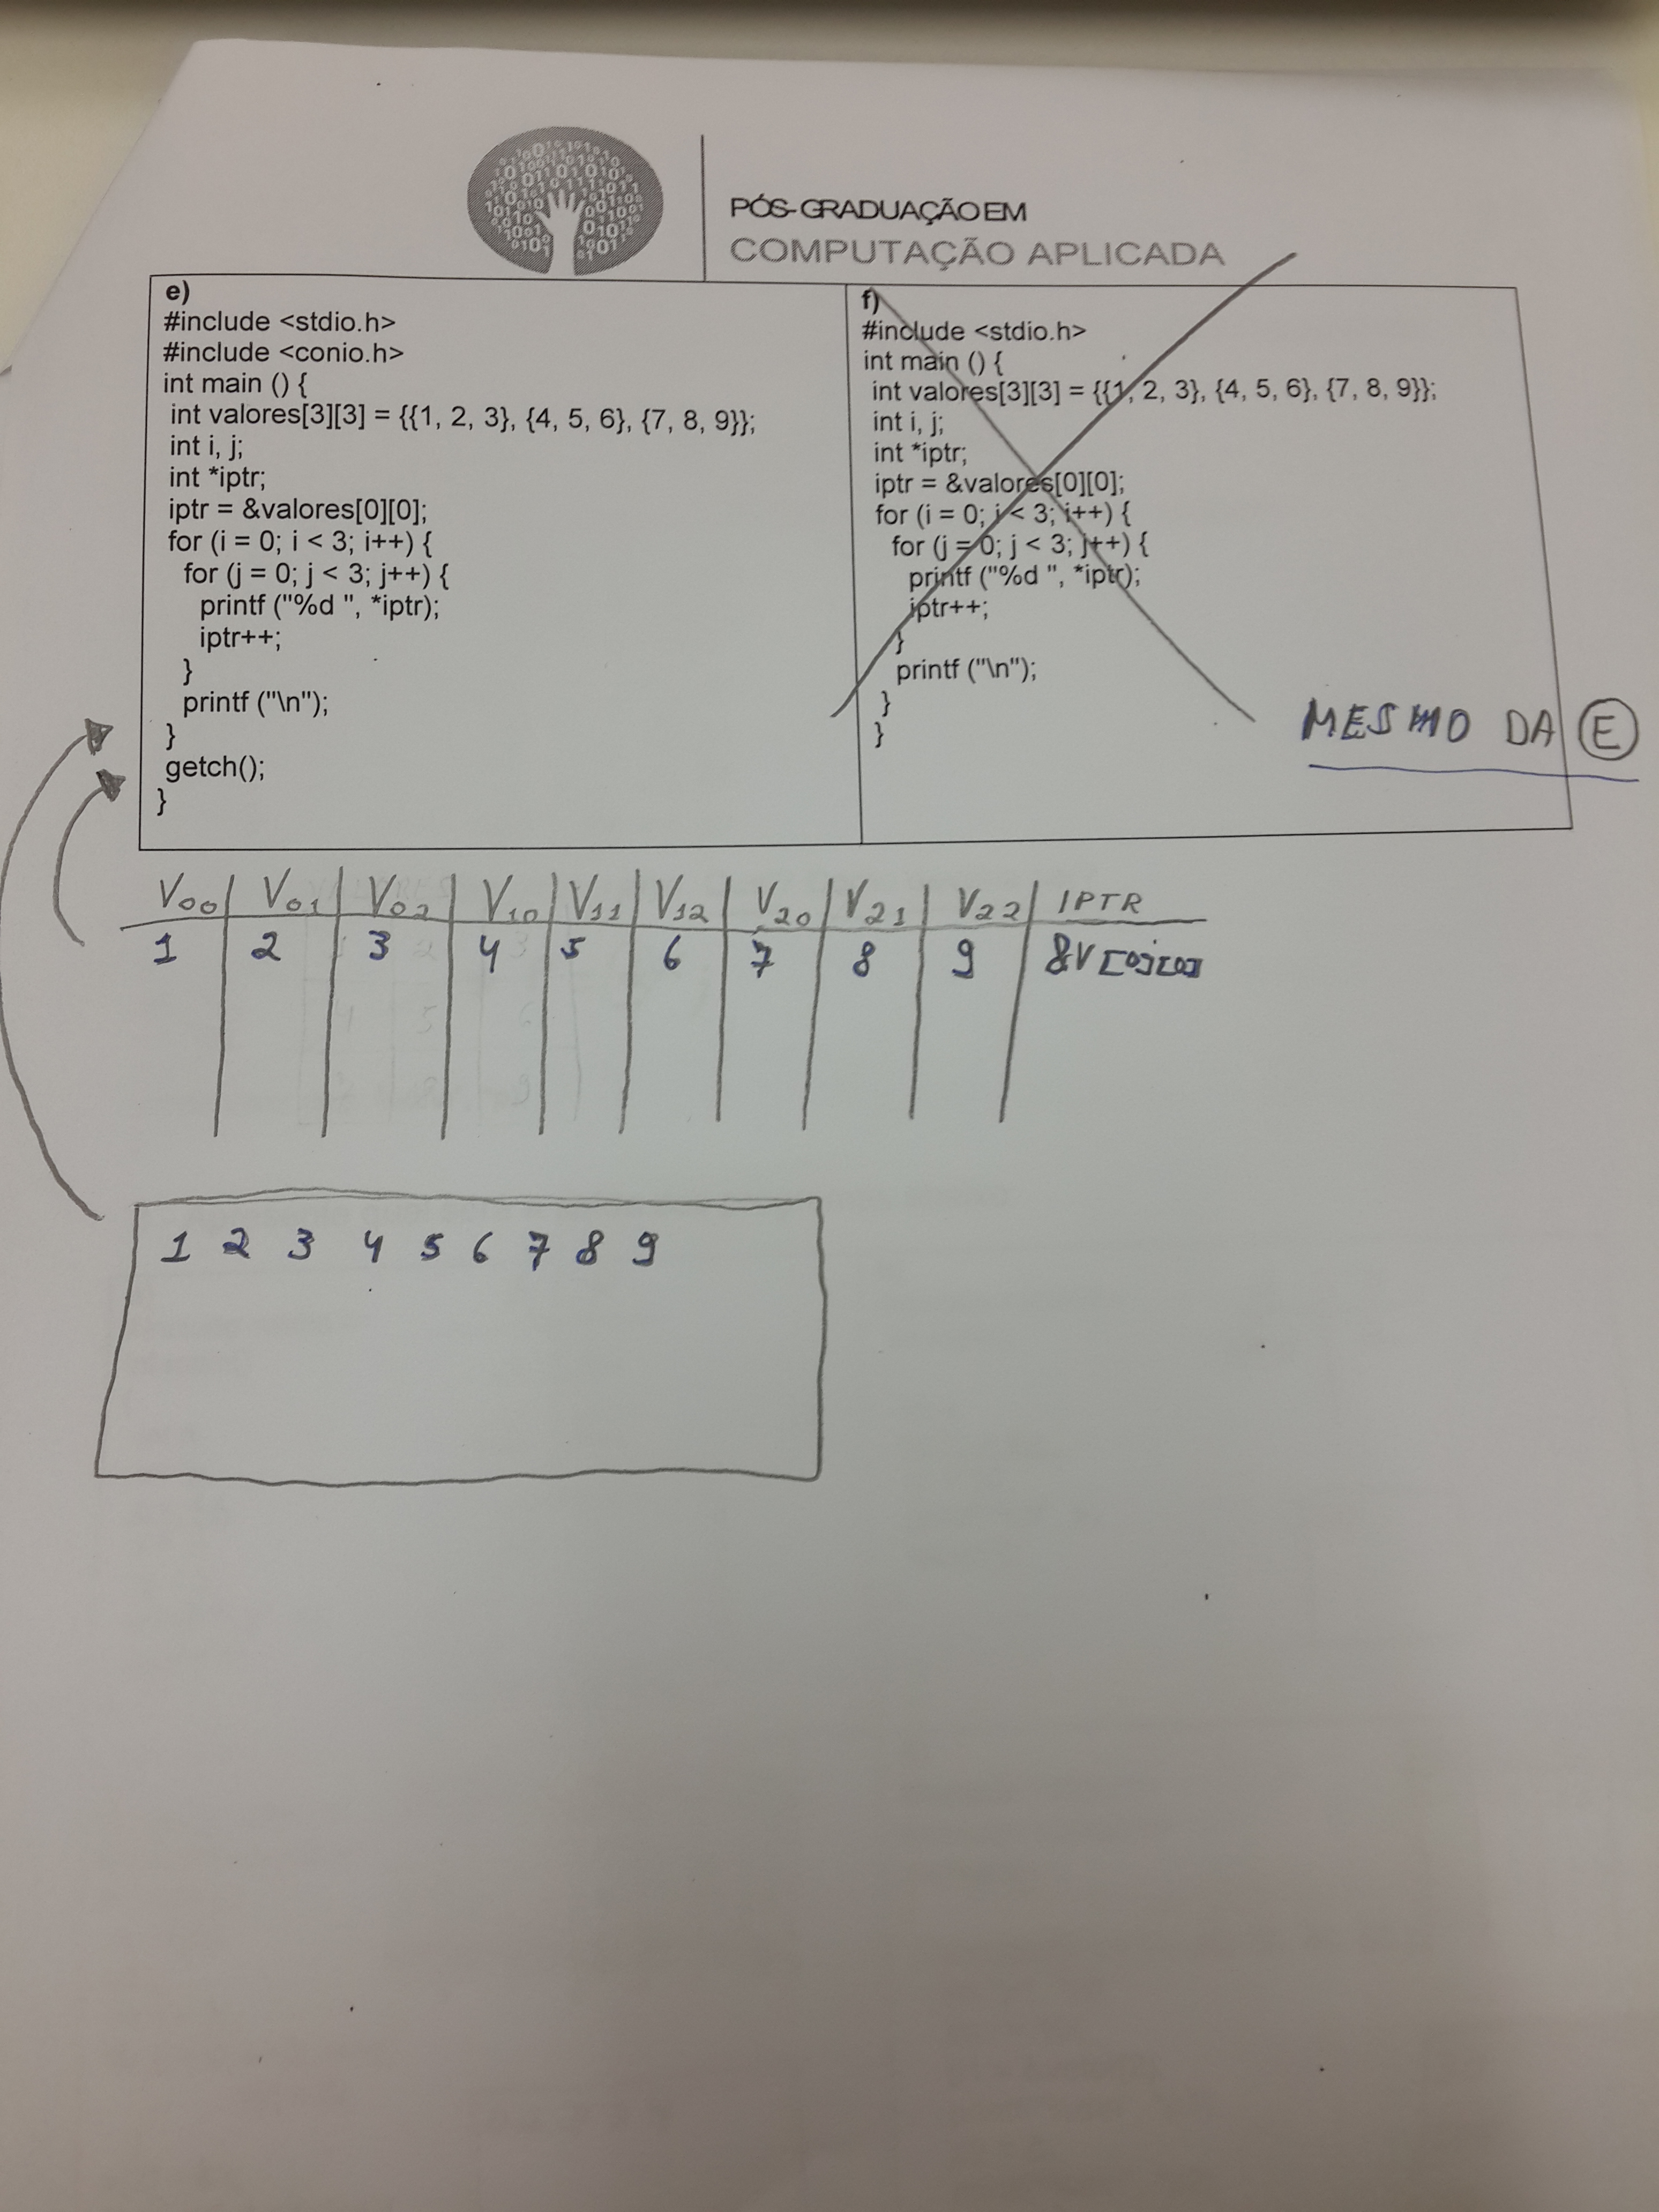 PÓS-GRADUAÇÃO EM
COMPUTAÇÃO APLICADA
e)
#include <stdio.h>
#include <conio.h>
int main () {
int valores[3][3] = {{1, 2, 3}, {4, 5, 6}, {7, 8, 9}};
int i, j;
int *iptr;
iptr = &valores[0][0];
for (i = 0; i < 3; i++) {
for (j = 0; j < 3; j++) {
printf ("%d ", *iptr);
iptr++;
}
printf ("\n");
}
getch();
}
f)
#include <stdio.h>
int main () {
int valores[3][3] = {{1, 2, 3}, {4, 5, 6}, {7, 8, 9}};
int i, j;
int *iptr;
iptr = &valores[0][0];
for (i = 0; i < 3; i++) {
for (j = 0; j < 3; j++) {
printf ("%d ", *iptr);
iptr++;
}
printf ("\n");
}
}
MESMO DA E
V00 V01 V02 V10 V11 V12 V20 V21 V22 IPTR
1 2 3 4 5 6 7 8 9 &V[0][0]
1 2 3 4 5 6 7 8 9